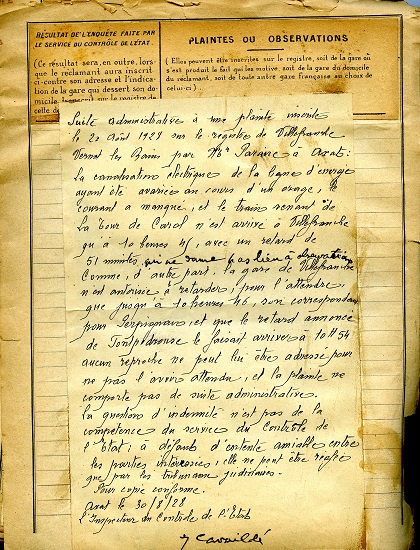 RÉSULTAT DE L'ENQUÊTE FAITE PAR
LE SERVICE DU CONTRÔLE DE L'ÉTAT.
(Ce résultat sera, en outre, lors-
que le réclamant aura inscrit
ci-contre son adresse et l'indica-
tion de la gare qui dessert son do-
micile,
PLAINTES OU OBSERVATIONS
(Elles peuvent être inscrites sur le registre, soit de la gare où
s'est produit le fait qui les motive, soit de la gare du domicile
du réclamant, soit de toute autre gare française au choix de
celui-ci.)
Suite administrative à une plainte inscrite
le 20 Août 1928 sur le registre de Villefranche
Vernet les Bains par Mr à Axat:
La canalisation électrique de la ligne d'énergie
ayant été avariée au cours d'un orage, le
courant a manqué, et le train venant de
La Tour de Carol n'est arrivé à Villefranche
qu'à 10 heures 45, avec un retard de
51 minutes, qui ne donne pas lieu à observation
Comme, d'autre part, la gare de Villefranche
n'est autorisée à retarder, pour l'attendre,
que jusqu'à 10 heures 46, son correspondant
pour Perpignan, et que le retard annoncé
de Fontpédrouse le faisait arriver à 10 H 54
aucun reproche ne peut lui être adressé pour
ne pas l'avoir attendu, et la plainte ne
comporte pas de suite administrative.
La question d'indemnité n'est pas de la
compétence du service du Contrôle de
l'Etat; à défaut d'entente amiable entre
les parties intéressées, elle ne peut être réglée
que par les tribunaux judiciaires.
Pour copie conforme.
Axat le 30/8/28
L'Inspecteur du Contrôle de l'Etat
Cavaillé